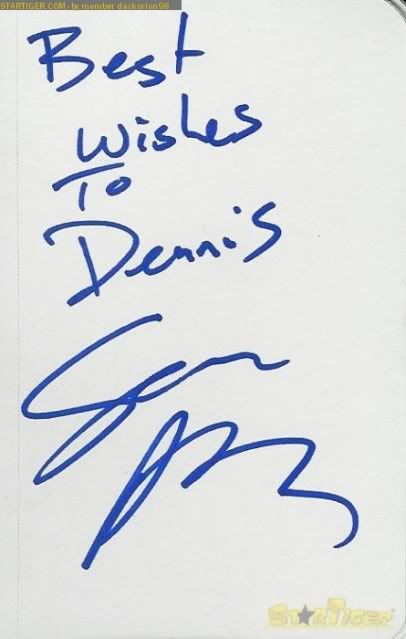 STARTIGER.COM - by member darkorion98
Best
Wishes
To
Dennis
STARTIGER